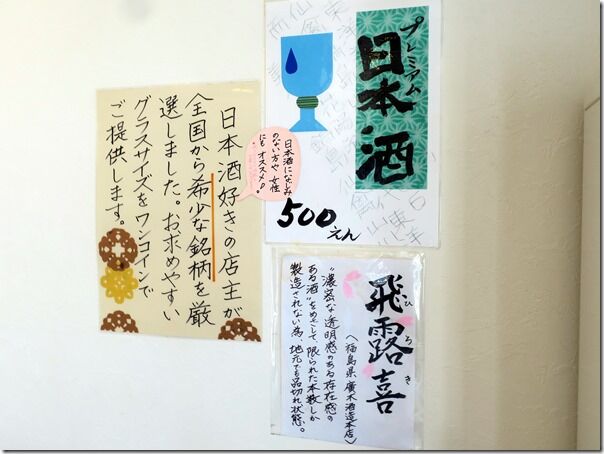 日本酒好きの店主が
全国から希少な銘柄を厳
選しました。お求めやすい
グラスサイズをワンコインで
ご提供します。
プレミアム
日本酒
日本酒になじみ
のない方や女性
にもオススメ!
500えん
飛露喜
ひろき
(福島県 廣木酒造本店)
"濃密な透明感のある存在感の
ある酒"をめざして、限られた本数しか
製造されない為、地元でも品切れ状態。